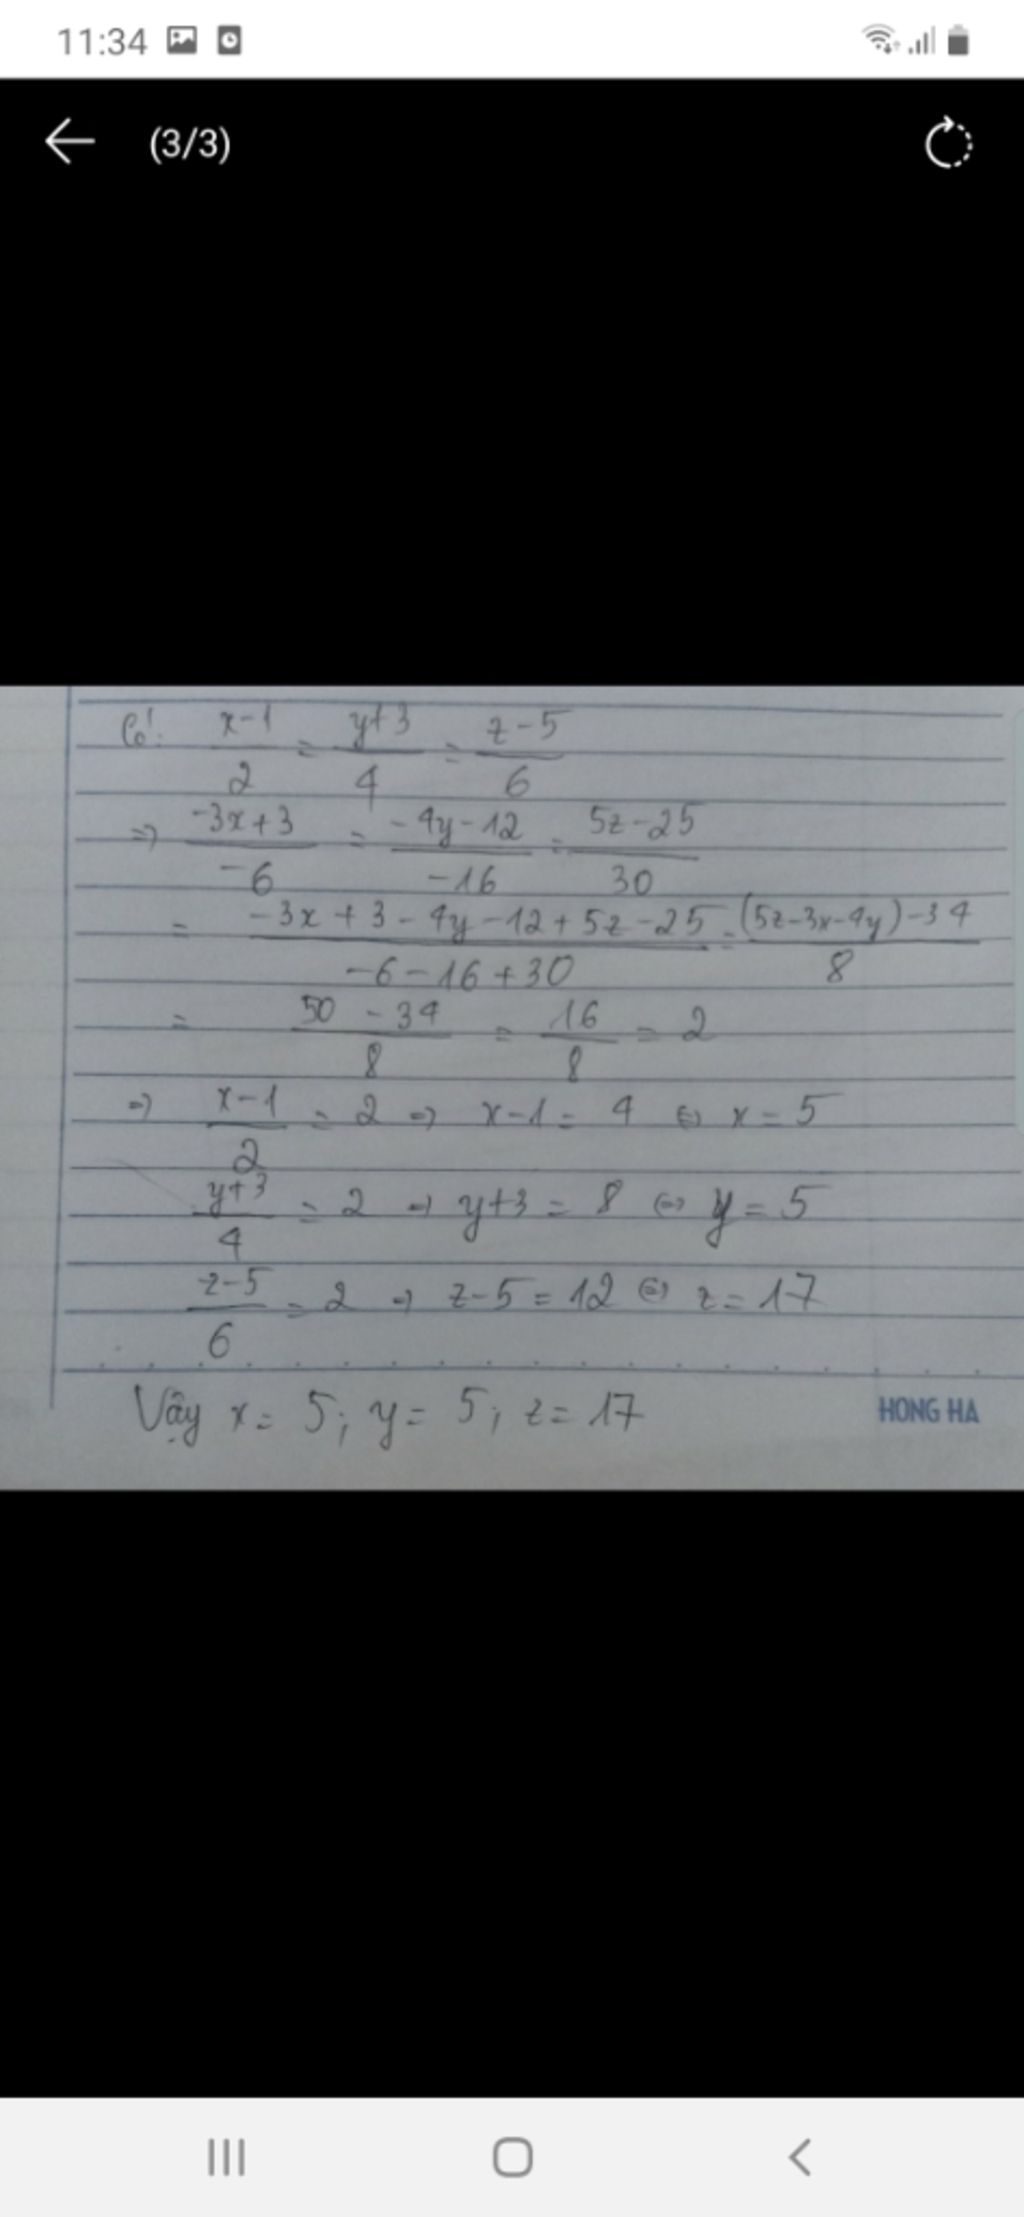 11:34
(3/3)
Có: x-1/2 = y+3/4 = z-5/6
=> -3x+3/-6 = -4y-12/-16 = 5z-25/30
= -3x+3-4y-12+5z-25/-6-16+30 = (5z-3x-4y)-34/8
= 50-34/8 = 16/8 = 2
=> x-1/2 = 2 => x-1 = 4 <=> x = 5
y+3/4 = 2 => y+3 = 8 <=> y = 5
z-5/6 = 2 => z-5 = 12 <=> z = 17
Vậy x = 5; y = 5; z = 17
HONG HA